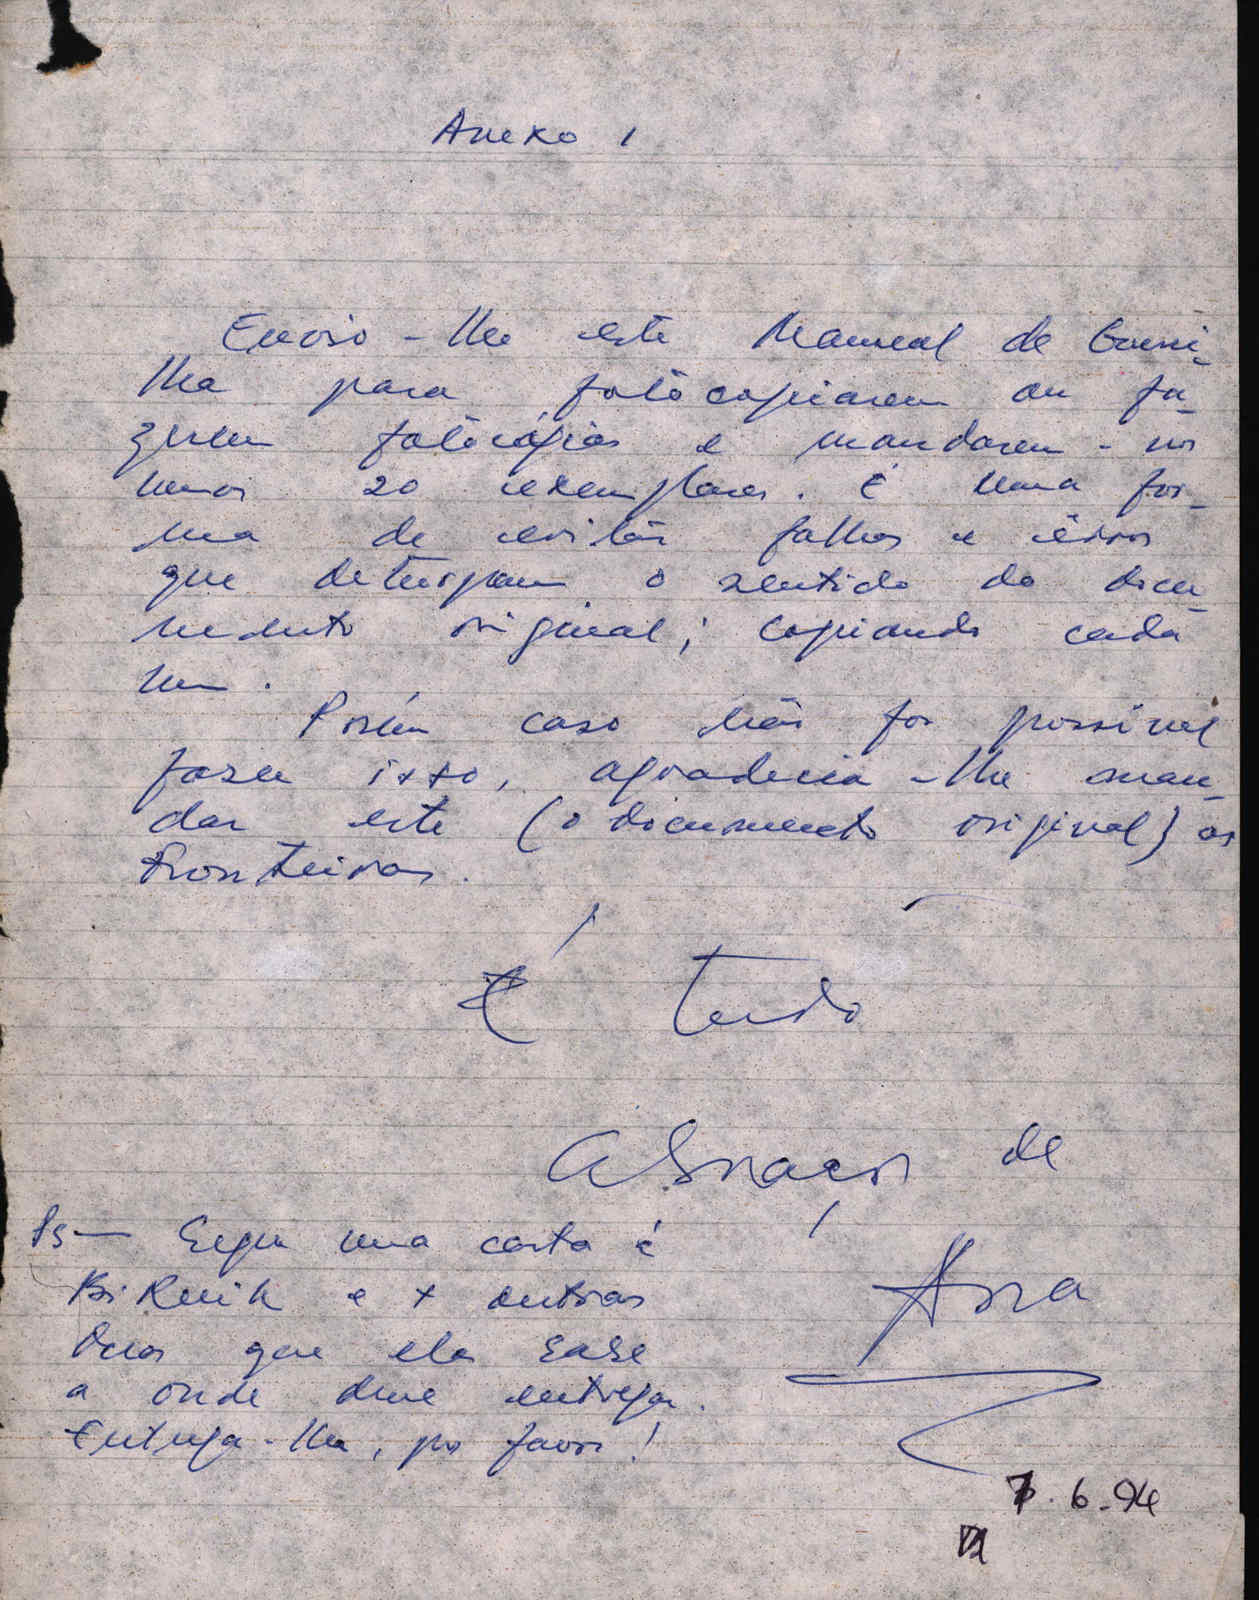 Anexo 1
Envio-lhe este Manual de Guerri-
lha para fotocopiarem ou fa-
zerem fotocópias e mandarem-nos
uns 20 exemplares. É uma for-
ma de evitar falhas e êrros
que deturpam o sentido do docu-
mento original; copiando cada
um.
Porém caso não for possivel
fazer isso, agradecia-lhe man-
dar este (o documento original) as
Fronteiras.
É tudo
Abraços de
Ps— Segue uma carta é
Bi Ruik e + outras
duas que ela sabe
a onde deve entregar.
Entrega-lha, por favor!
Ana
7.6.94